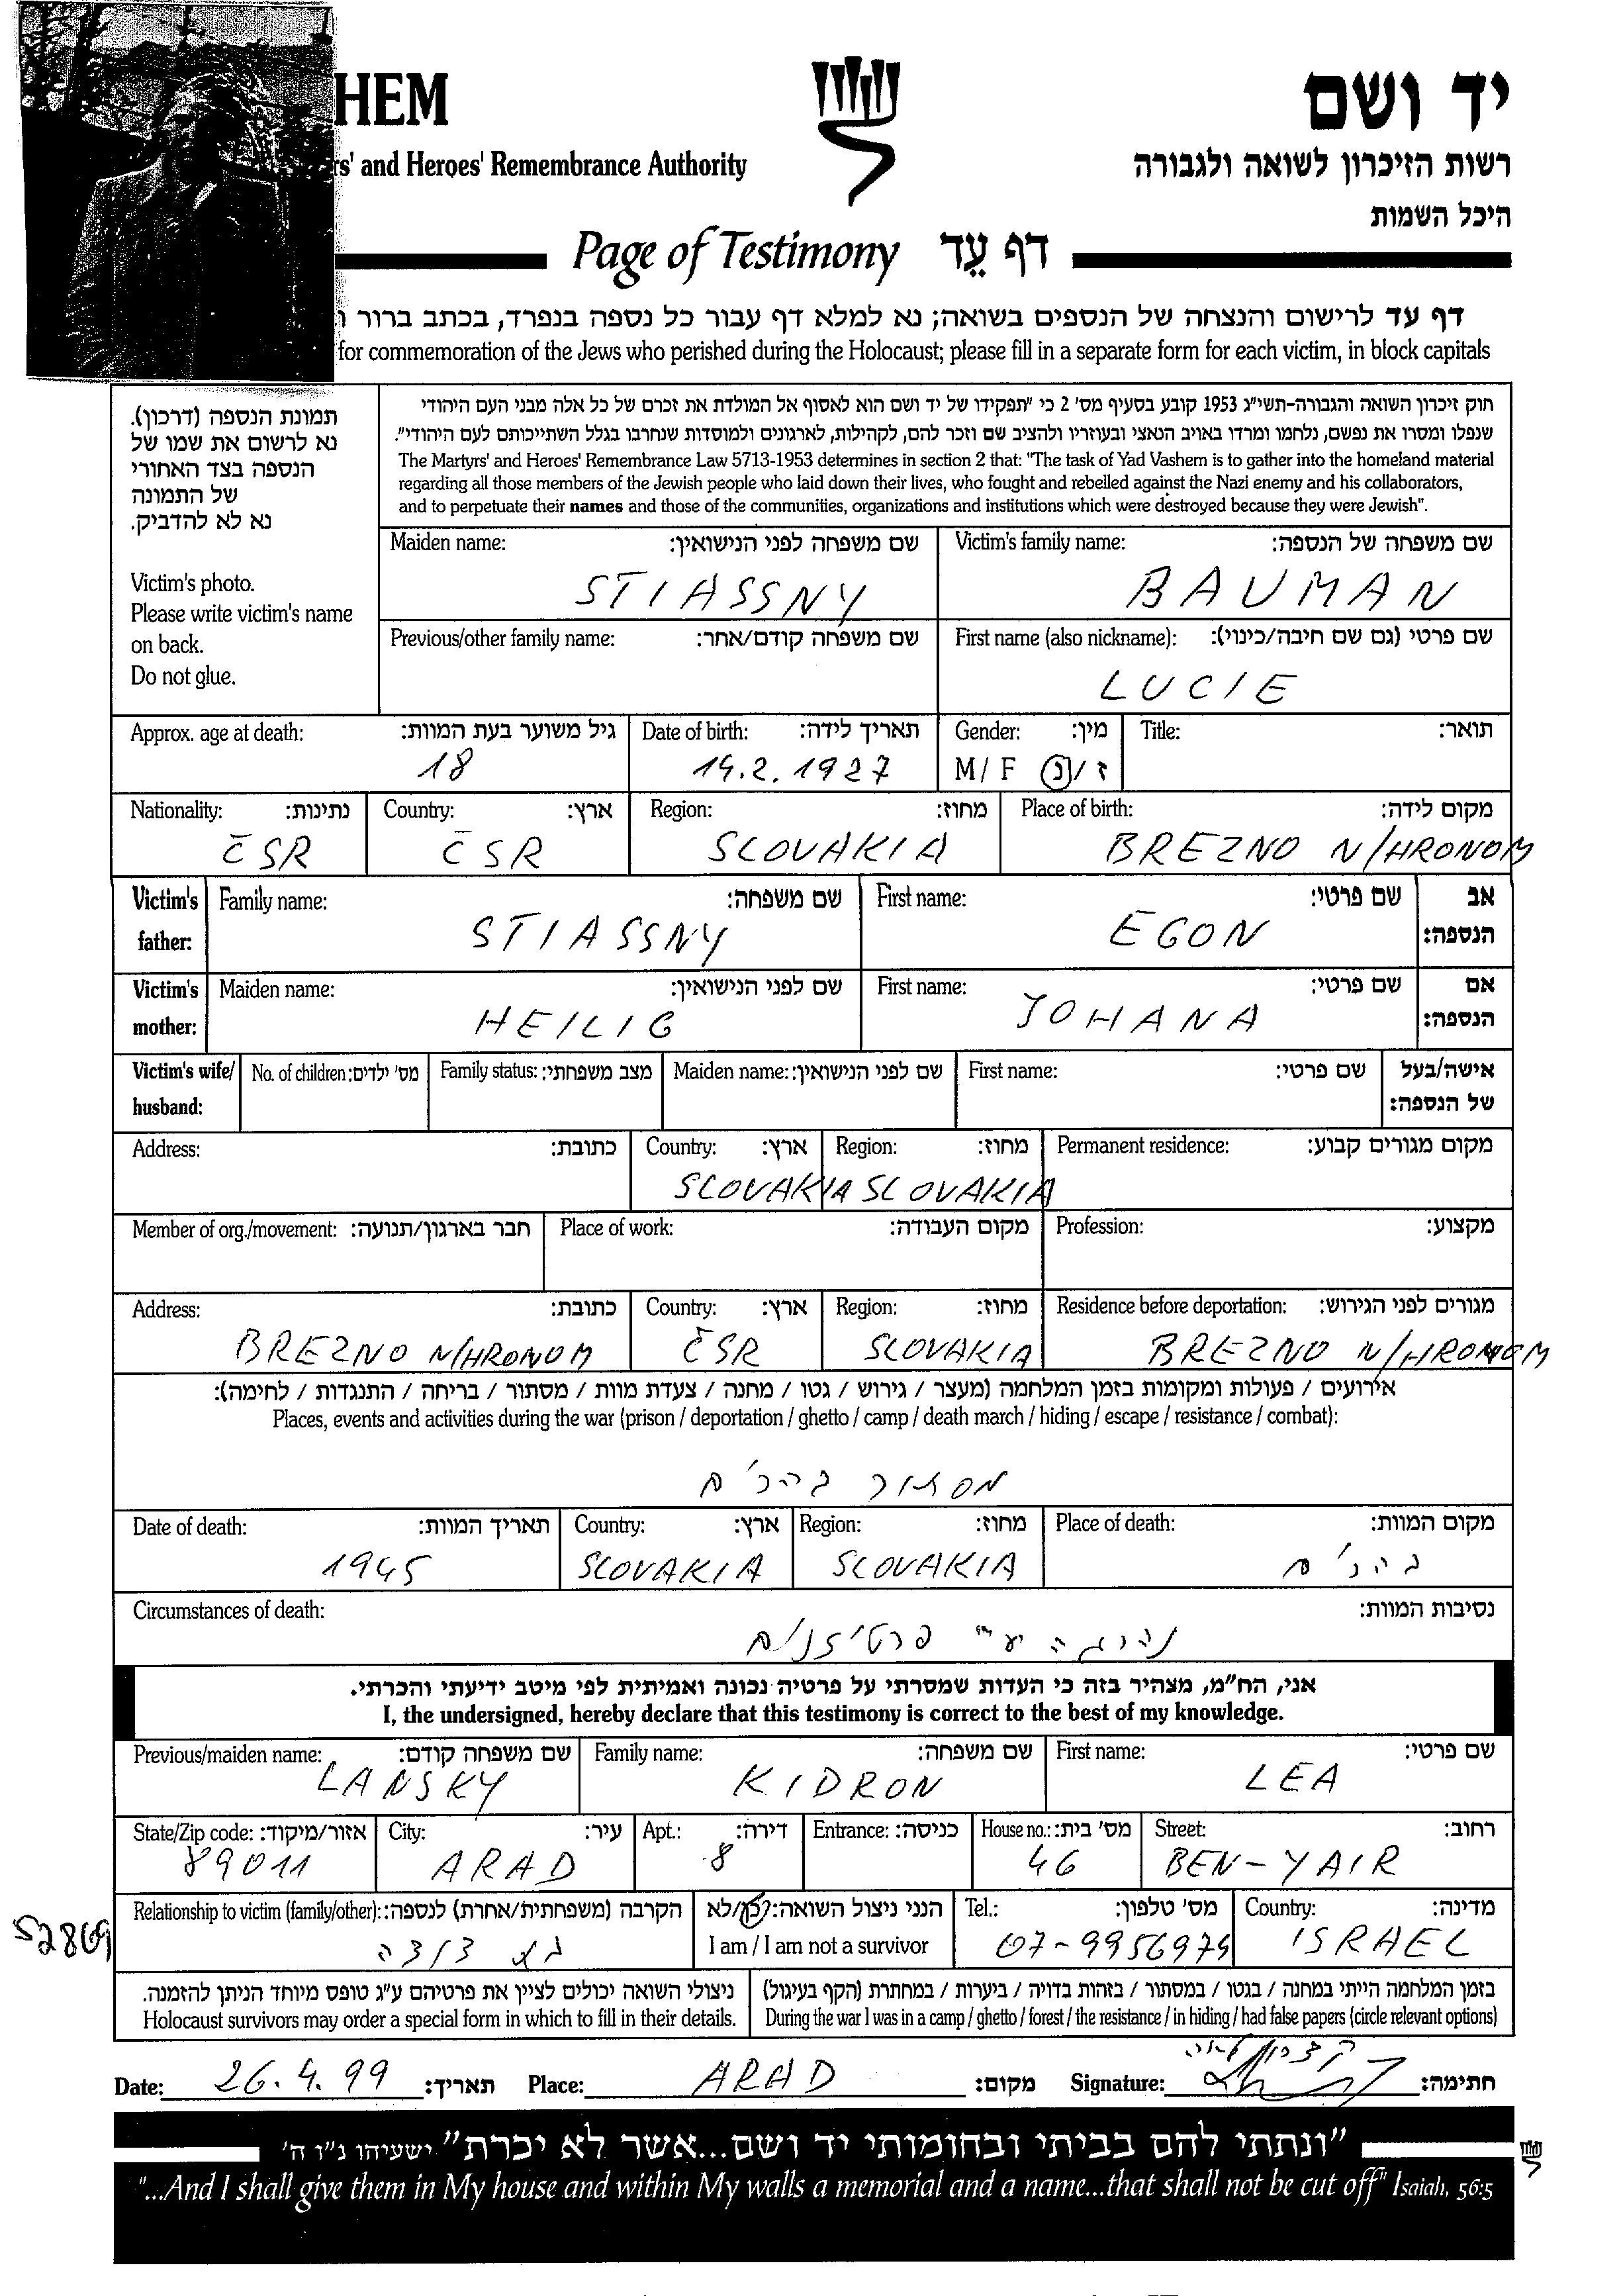 HEM
rs' and Heroes' Remembrance Authority
יד ושם
רשות הזיכרון לשואה ולגבורה
היכל השמות
Page of Testimony דף עֵד
דף עד לרישום והנצחה של הנספים בשואה; נא למלא דף עבור כל נספה בנפרד, בכתב ברור ו
for commemoration of the Jews who perished during the Holocaust; please fill in a separate form for each victim, in block capitals
תמונת הנספה (דרכון).
נא לרשום את שמו של
הנספה בצד האחורי
של התמונה
נא לא להדביק.
Victim's photo.
Please write victim's name
on back.
Do not glue.
חוק זיכרון השואה והגבורה-תשי"ג 1953 קובע בסעיף מס' 2 כי "תפקידו של יד ושם הוא לאסוף אל המולדת את זכרם של כל אלה מבני העם היהודי
שנפלו ומסרו את נפשם, נלחמו ומרדו באויב הנאצי ובעוזריו ולהציב שם וזכר להם, לקהילות, לארגונים ולמוסדות שנחרבו בגלל השתייכותם לעם היהודי".
The Martyrs' and Heroes' Remembrance Law 5713-1953 determines in section 2 that: "The task of Yad Vashem is to gather into the homeland material
regarding all those members of the Jewish people who laid down their lives, who fought and rebelled against the Nazi enemy and his collaborators,
and to perpetuate their names and those of the communities, organizations and institutions which were destroyed because they were Jewish".
Maiden name: שם משפחה לפני הנישואין: Victim's family name: שם משפחה של הנספה:
STIASSNY BAUMAN
Previous/other family name: שם משפחה קודם/אחר: First name (also nickname): שם פרטי (גם שם חיבה/כינוי):
LUCIE
Approx. age at death: גיל משוער בעת המוות: Date of birth: תאריך לידה: Gender: מין: Title: תואר:
18 14.2.1927 M/ F ז/נ
Nationality: נתינות: Country: ארץ: Region: מחוז: Place of birth: מקום לידה:
ČSR ČSR SLOVAKIA BREZNO N/HRONOM
Victim's father: Family name: שם משפחה: First name: שם פרטי: אב הנספה:
STIASSNY EGON
Victim's mother: Maiden name: שם לפני הנישואין: First name: שם פרטי: אם הנספה:
HEILIG JOHANA
Victim's wife/ husband: No. of children: מס' ילדים: Family status: מצב משפחתי: Maiden name: שם לפני הנישואין: First name: שם פרטי: אישה/בעל של הנספה:
Address: כתובת: Country: ארץ: Region: מחוז: Permanent residence: מקום מגורים קבוע:
SLOVAKIA SLOVAKIA
Member of org./movement: חבר בארגון/תנועה: Place of work: מקום העבודה: Profession: מקצוע:
Address: כתובת: Country: ארץ: Region: מחוז: Residence before deportation: מגורים לפני הגירוש:
BREZNO N/HRONOM ČSR SLOVAKIA BREZNO N/HRONOM
אירועים / פעולות ומקומות בזמן המלחמה (מעצר / גירוש / גטו / מחנה / צעדת מוות / מסתור / בריחה / התנגדות / לחימה):
Places, events and activities during the war (prison / deportation / ghetto / camp / death march / hiding / escape / resistance / combat):
מסתור בהרים
Date of death: תאריך המוות: Country: ארץ: Region: מחוז: Place of death: מקום המוות:
1945 SLOVAKIA SLOVAKIA בהרים
Circumstances of death: נסיבות המוות:
נהרגה ע"י פרטיזנים
אני, הח"מ, מצהיר בזה כי העדות שמסרתי על פרטיה נכונה ואמיתית לפי מיטב ידיעתי והכרתי.
I, the undersigned, hereby declare that this testimony is correct to the best of my knowledge.
Previous/maiden name: שם משפחה קודם: Family name: שם משפחה: First name: שם פרטי:
LANSKY KIDRON LEA
State/Zip code: אזור/מיקוד: City: עיר: Apt.: דירה: Entrance: כניסה: House no.: מס' בית: Street: רחוב:
89011 ARAD 8 46 BEN-YAIR
Relationship to victim (family/other): הקרבה (משפחתית/אחרת) לנספה: הנני ניצול השואה: כן/לא Tel.: מס' טלפון: Country: מדינה:
בת דודה I am / I am not a survivor 07-9956974 ISRAEL
52869
ניצולי השואה יכולים לציין את פרטיהם ע"ג טופס מיוחד הניתן להזמנה. בזמן המלחמה הייתי במחנה / בגטו / במסתור / בזהות בדויה / ביערות / במחתרת (הקף בעיגול)
Holocaust survivors may order a special form in which to fill in their details. During the war I was in a camp / ghetto / forest / the resistance / in hiding / had false papers (circle relevant options)
Date: 26.4.99 תאריך: Place: ARAD מקום: Signature: קדרון לאה חתימה:
"ונתתי להם בביתי ובחומותי יד ושם...אשר לא יכרת" ישעיהו נ"ו ה'
"...And I shall give them in My house and within My walls a memorial and a name...that shall not be cut off" Isaiah, 56:5